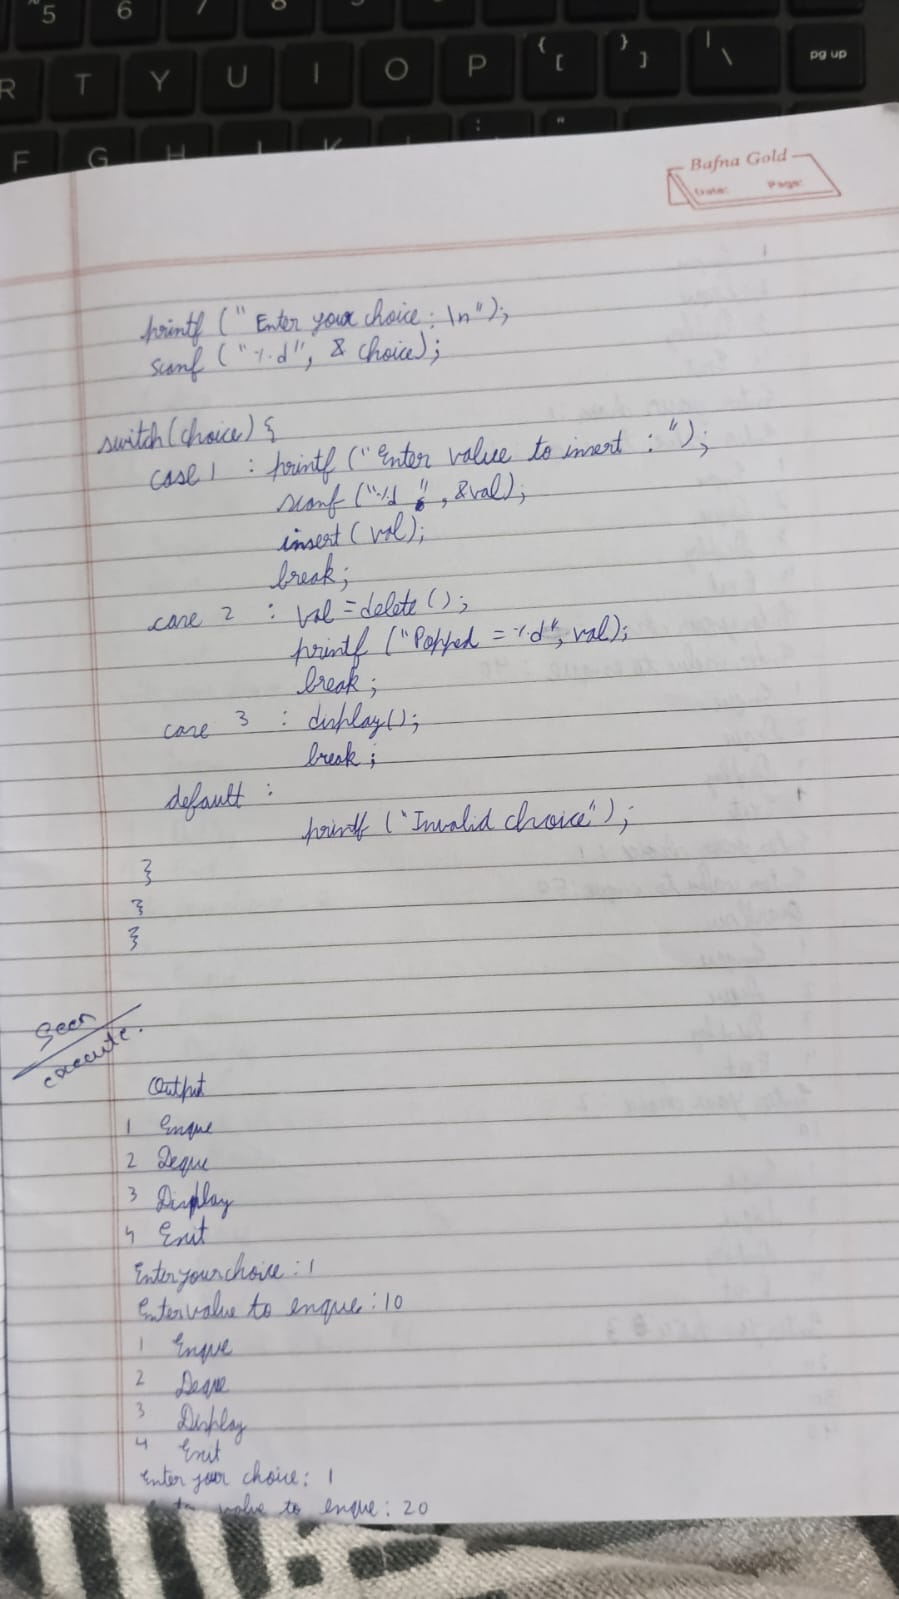 5 6 7 8
R T Y U I O P { [ } ] | \ pg up
F G H
Bafna Gold
Date: Page:
printf ("Enter your choice : \n");
scanf ("%d", & choice);
switch(choice) {
case 1 : printf ("Enter value to insert : ");
scanf ("%d", &val);
insert ( val);
break;
case 2 : val = delete ();
printf ("Popped = %d", val);
break;
case 3 : display();
break;
default :
printf ("Invalid choice");
}
}
}
Seen
execute.
Output
1 Enque
2 Deque
3 Display
4 Exit
Enter your choice : 1
Enter value to enque : 10
1 Enque
2 Deque
3 Display
4 Exit
Enter your choice : 1
value to enque : 20